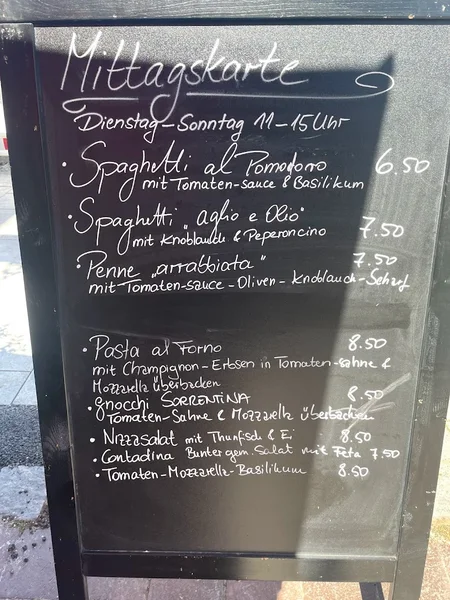 Mittagskarte
Dienstag-Sonntag 11-15 Uhr
• Spaghetti al Pomodoro 6.50
mit Tomaten-sauce & Basilikum
• Spaghetti "aglio e Olio" 7.50
mit Knoblauch & Peperoncino
• Penne „arrabbiata" 7.50
mit Tomaten-sauce - Oliven - Knoblauch - Scharf
• Pasta al Forno 8.50
mit Champignon - Erbsen in Tomaten-sahne &
Mozzarella überbacken
• gnocchi SORRENTINA 8.50
Tomaten-Sahne & Mozzarella überbacken
• Nizzasalat mit Thunfisch & Ei 8.50
• Contadina Bunter gem. Salat mit Feta 7.50
• Tomaten-Mozzarella-Basilikum 8.50